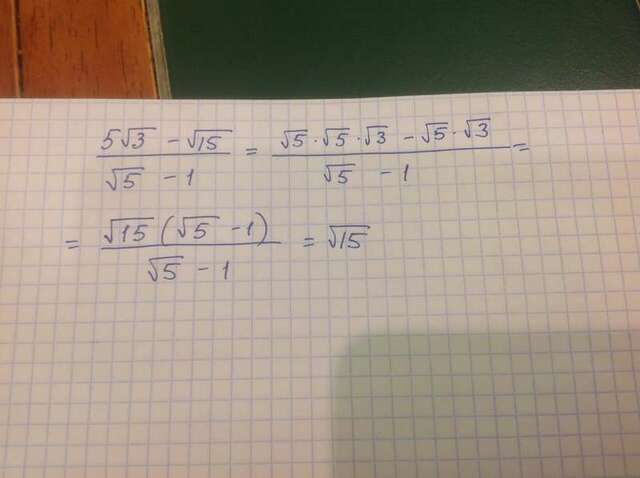 (5√3 - √15)/(√5 - 1) = (√5 · √5 · √3 - √5 · √3)/(√5 - 1) =
= (√15 (√5 - 1))/(√5 - 1) = √15